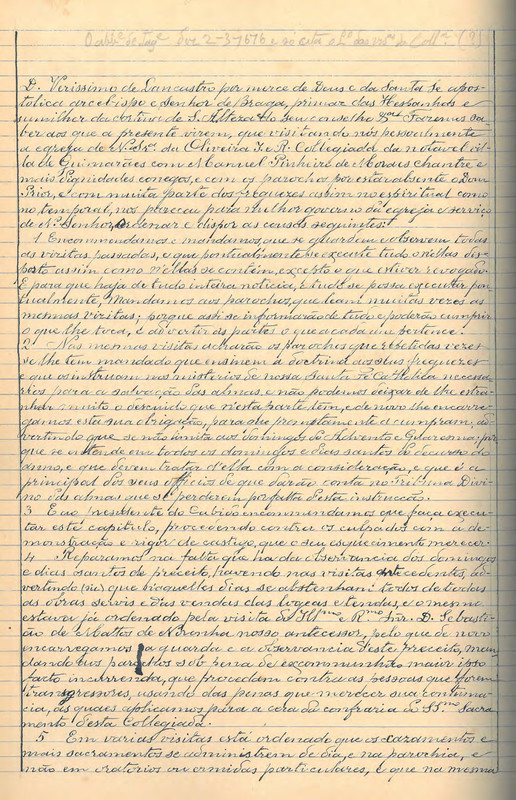 D. Verissimo de Lancastro por merce de Deus e da Santa Sé apos-
tolica arcebispo e Senhor de Braga, primaz das Hespanhas e
sumilher da cortina de S. Alteza e do seu conselho etc. Fazemos sa
ber aos que a presente virem, que visitando nós pessoalmente
a egreja de N. Snrª da Oliveira I. e R. Collegiada da notavel vil-
la de Guimarães com Manuel Pinheiro de Moraes chantre e
mais Dignidades conegos, e com os parochos por estar absente o Dom
Prior, e com muita parte dos freguezes assim no espiritual como
no temporal, nos pareceu para melhor governo da egreja e serviço
de N. Senhor, ordenar e dispor as cousas seguintes:
1 Encommendamos e mandamos, que se guardem e observem todas
as visitas passadas, e que pontualmente se execute tudo o n'ellas dis-
posto assim como n'ellas se contêm, excepto o que estiver revogado.
E para que haja de tudo inteira noticia, e tudo se possa executar pon
tualmente, Mandamos aos parochos, que leam muitas vezes as
mesmas visitas; porque assi se informarão de tudo e poderão cumprir
o que lhe toca, e advertir ás partes o que a cada um pertence.
2 Nas mesmas visitas acharão os parochos que repetidas vezes
se lhe tem mandado que ensinem a doctrina aos seus freguezes
e que os instruam nos misterios de nossa Santa Fé Catholica necessa-
rios para a salvação das almas, e não podemos deixar de lhe estra-
nhar muito o descuido que n'esta parte têm, e de novo lhe encarre-
gamos esta sua obrigação, para que promptamente a cumpram, ad-
vertindo que se não limita aos domingos do Advento e Quaresma; por
que se entende em todos os domingos e dias santos do decurso do
anno, e que devem tratar d'ella com a consideração, e que é a
principal dos seus officios de que darão conta no Tribunal Divi-
no das almas que se perderem por falta d'esta instrucção.
3 E ao Presidente do Cabido encommendamos que faça execu-
tar este capitulo, procedendo contra os culpados com a de-
monstração e rigor de castigo, que seu esquecimento merecer.
4 Reparamos na falta que ha da observancia dos domingos
e dias santos de preceito, havendo nas visitas antecedentes, ad-
vertindo (sic) que n'aquelles dias se abstenham todos de todas
as obras servis e das vendas das logeas e tendas e o mesmo
estava já ordenado pela visita do Illmo e Rmo Snr. D. Sebasti-
ão de Mattos de Noronha nosso antecessor, pelo que de novo
encarregamos a guarda e a observancia d'este preceito, man
dando aos parochos sob pena de excommunhão maior ipso
facto incurrenda, que procedam contra as pessoas que forem
transgressores, usando das penas que merecer sua contuma-
cia, as quaes applicamos para a cera da confraria do SS.mo Sacra
mento d'esta Collegiada.
5 Em varias visitas está ordenado que os sacramentos e
mais sacramentos se administrem de dia, e na parochia, e
não em oratorios ou ermidas particulares, e que na mesma